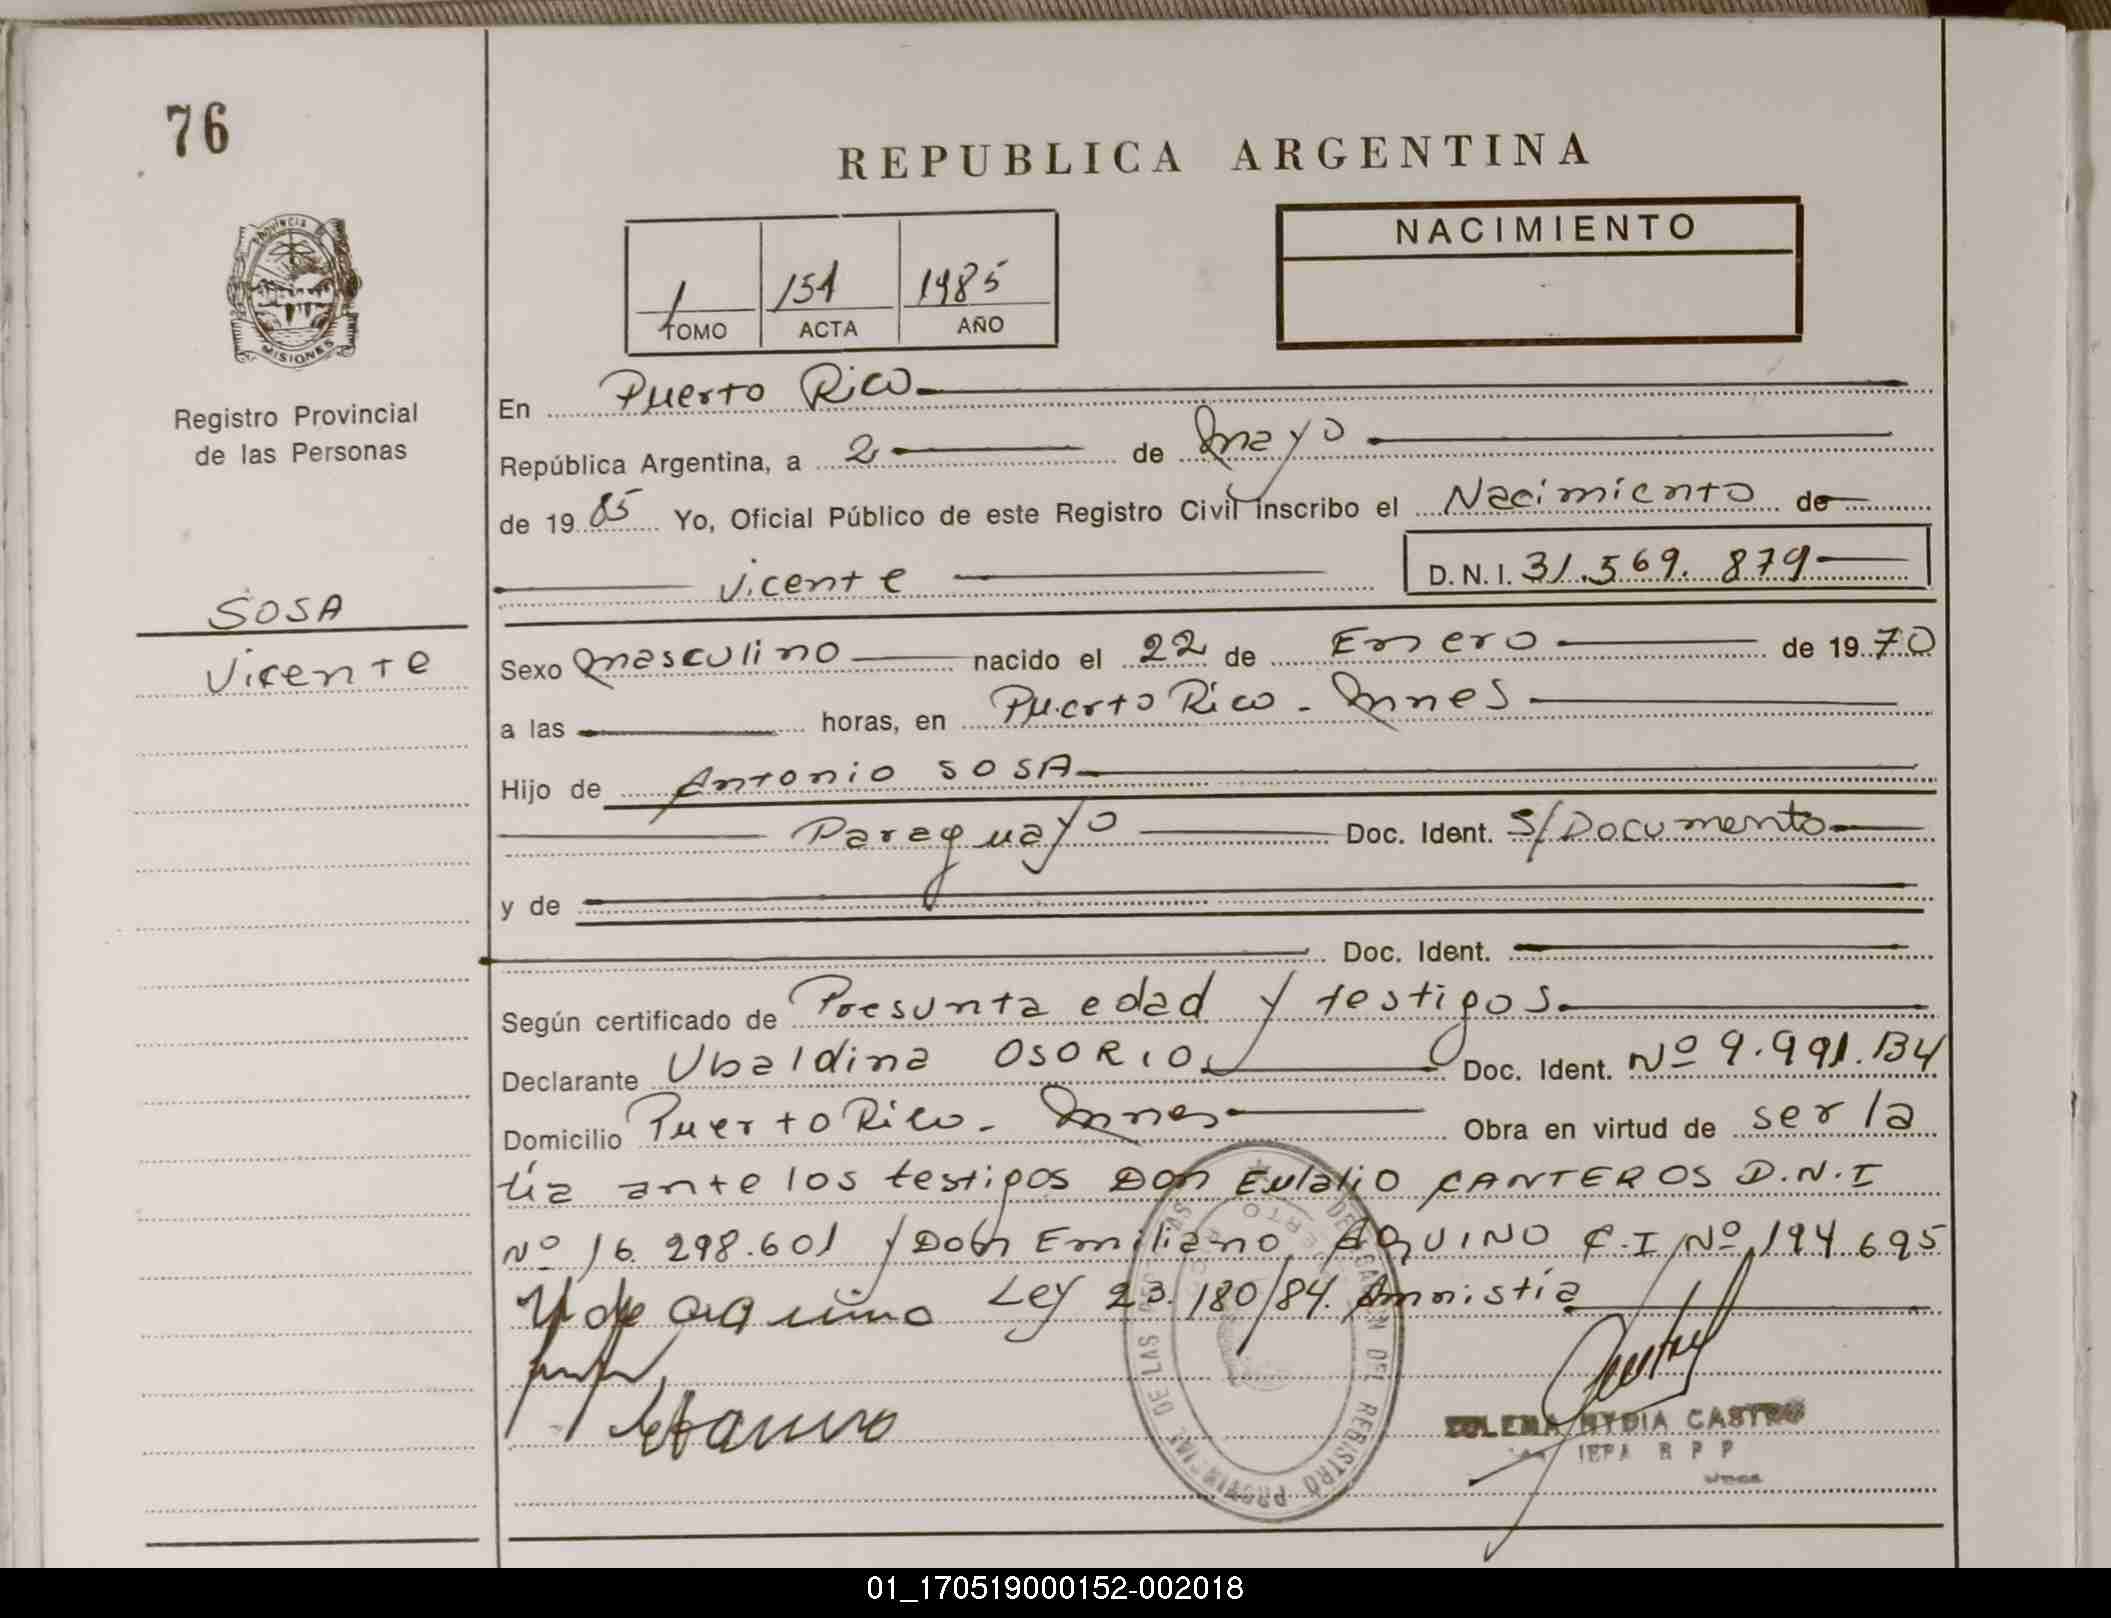 76
REPUBLICA ARGENTINA
PROVINCIA DE
MISIONES
Registro Provincial
de las Personas
1 151 1985
TOMO ACTA AÑO
NACIMIENTO
En Puerto Rico
República Argentina, a 2 de Mayo
de 1985 Yo, Oficial Público de este Registro Civil inscribo el Nacimiento de
Vicente D.N.I. 31.569.879
SOSA
Vicente
Sexo Masculino nacido el 22 de Enero de 1970
a las horas, en Puerto Rico - Mnes
Hijo de Antonio SOSA
Paraguayo Doc. Ident. S/Documento
y de
Doc. Ident.
Según certificado de Presunta edad y testigos
Declarante Ubaldina OSORIO Doc. Ident. Nº 9.991.134
Domicilio Puerto Rico - Mnes Obra en virtud de ser la
tía ante los testigos Don Eulalio CANTEROS D.N.I
Nº 16.298.601 y Don Emiliano AQUINO C.I Nº 194.695
Ley 23.180/84. Amnistía
NYDIA CASTRO
R P P
01_170519000152-002018